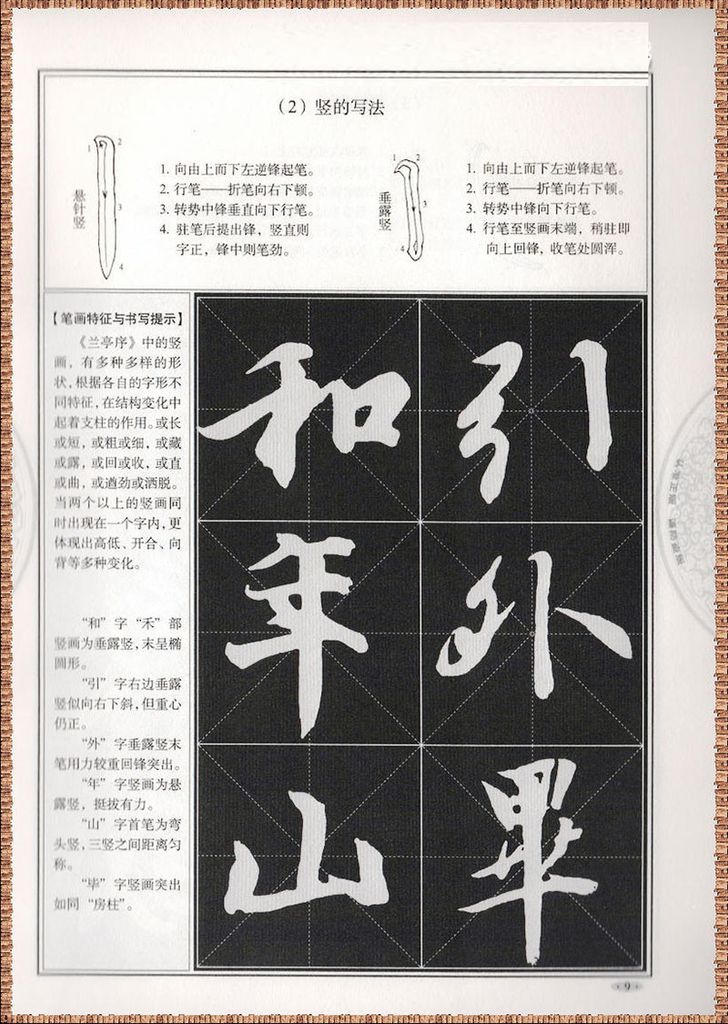 (2) 竖的写法
悬针竖
1
2
3
4
1. 向由上而下左逆锋起笔。
2. 行笔——折笔向右下顿。
3. 转势中锋垂直向下行笔。
4. 驻笔后提出锋，竖直则
字正，锋中则笔劲。
垂露竖
1
2
3
4
1. 向由上而下左逆锋起笔。
2. 行笔——折笔向右下顿。
3. 转势中锋向下行笔。
4. 行笔至竖画末端，稍驻即
向上回锋，收笔处圆浑。
【笔画特征与书写提示】
《兰亭序》中的竖
画，有多种多样的形
状，根据各自的字形不
同特征，在结构变化中
起着支柱的作用。或长
或短，或粗或细，或藏
或露，或回或收，或直
或曲，或遒劲或洒脱。
当两个以上的竖画同
时出现在一个字内，更
体现出高低、开合、向
背等多种变化。
“和”字“禾”部
竖画为垂露竖，末呈椭
圆形。
“引”字右边垂露
竖似向右下斜，但重心
仍正。
“外”字垂露竖末
笔用力较重回锋突出。
“年”字竖画为悬
露竖，挺拔有力。
“山”字首笔为弯
头竖，三竖之间距离匀
称。
“毕”字竖画突出
如同“房柱”。
引
外
畢
和
年
山
·9·